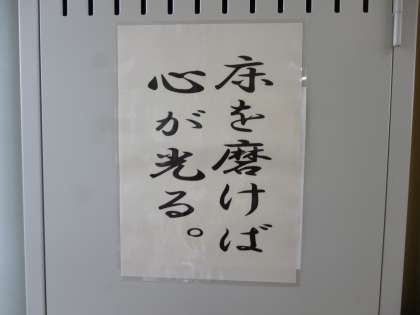 床を磨けば
心が光る。